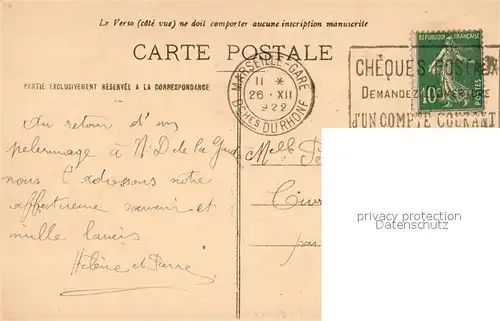 Le Verso (côté vue) ne doit comporter aucune inscription manuscrite
CARTE POSTALE
PARTIE EXCLUSIVEMENT RÉSERVÉE A LA CORRESPONDANCE
MARSEILLE-GARE
11 *
26 · XII
922
BCHES DU RHONE
CHÈQUES POSTAUX
DEMANDEZ L'OUVERTURE
D'UN COMPTE COURANT
RÉPUBLIQUE FRANÇAISE
10
POSTES
Au retour d'un
pelerinage à N. D de la Garde
nous t'adressons notre
affectueux souvenir et
mille baisers
Hélène et Pierre
Melle
par
privacy protection
Datenschutz